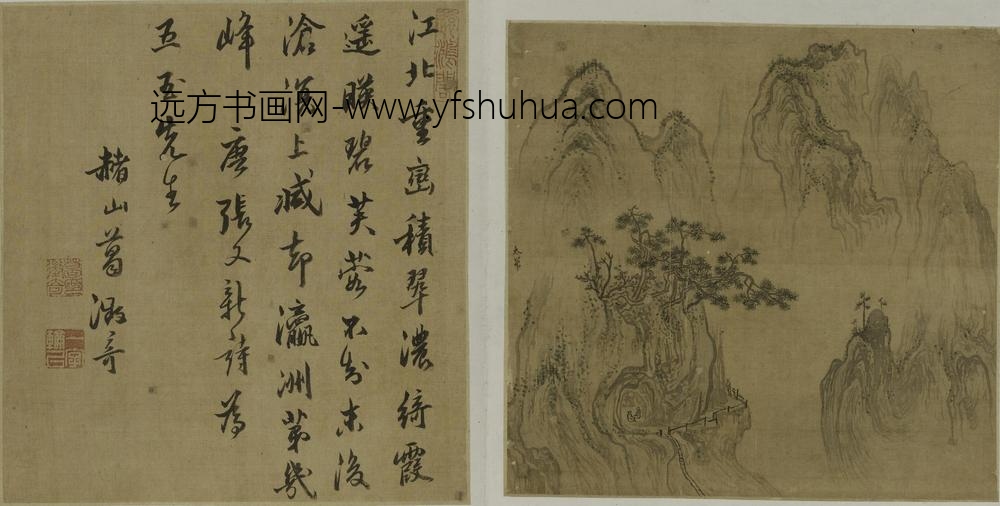 江北重巒積翠濃綺霞
遥暎碧芙蓉不知末後
滄溟上減却瀛洲第幾
峰 唐張又新詩為
五玉先生
赭山葛徵奇
远方书画网-www.yfshuhua.com